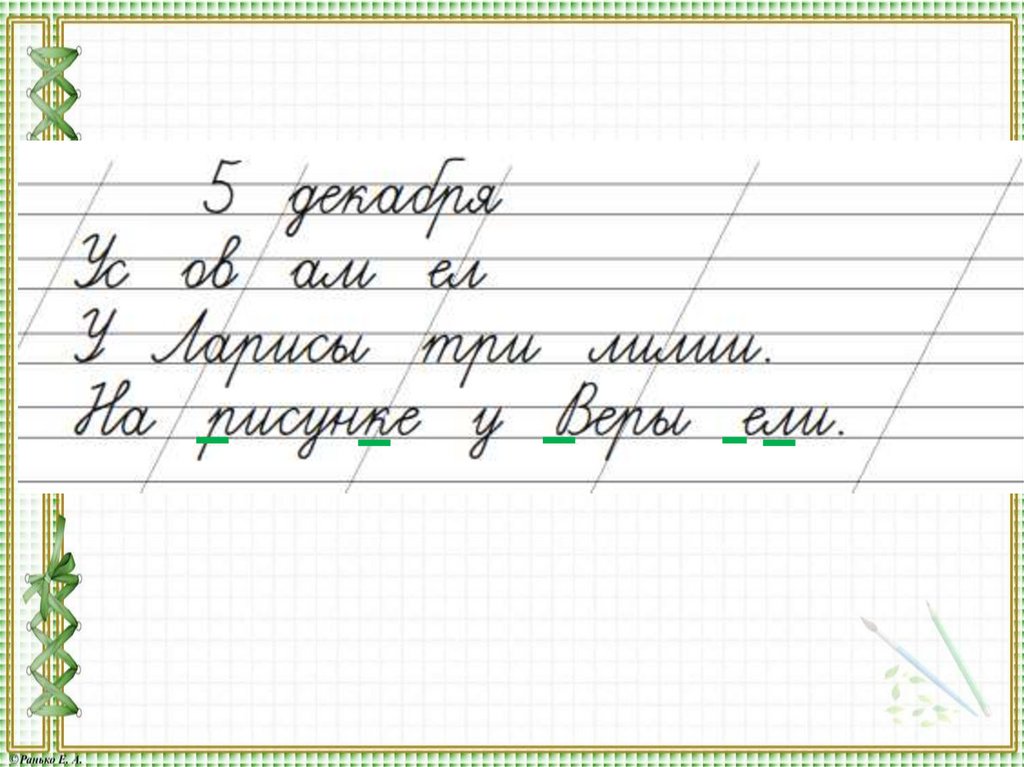 5 декабря
Ус ов ам ел
У Ларисы три лилии.
На рисунке у Веры ели.
©Ранько Е. А.